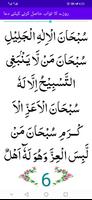 روزے کا ثواب حاصل کرنے کیلئے دعا
سُبْحَانَ الْاِلٰهِ الْجَلِيْلِ
سُبْحَانَ مَنْ لَّا يَنْۢبَغِي
التَّسْبِيْحُ اِلَّا لَهٗ
سُبْحَانَ الْاَعَزِّ الْاَ
كْرَمِ سُبْحَانَ مَنْ
لَّبِسَ الْعِزَّ وَهُوَ لَهٗ اَهْلٌ
6